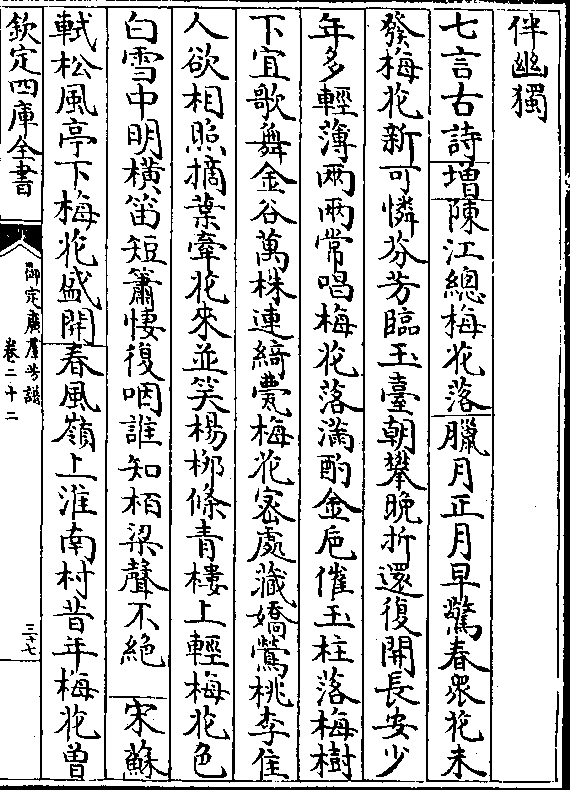 伴幽獨
七言古詩增陳江總梅花落臘月正月早驚春衆花未
發梅花新可憐芬芳臨玉臺朝攀晚折還復開長安少
年多輕薄兩兩常唱梅花落滿酌金巵催玉柱落梅樹
下宜歌舞金谷萬株連綺甍梅花密處藏嬌鶯桃李佳
人欲相照摘葉牽花來並笑楊栁條青樓上輕梅花色
白雪中明横笛短簫悽復咽誰知栢梁聲不絶 宋蘇
軾松風亭下梅花盛開春風嶺上淮南村昔年梅花曾
欽定四庫全書 御定廣羣芳譜 卷二十二 三十七